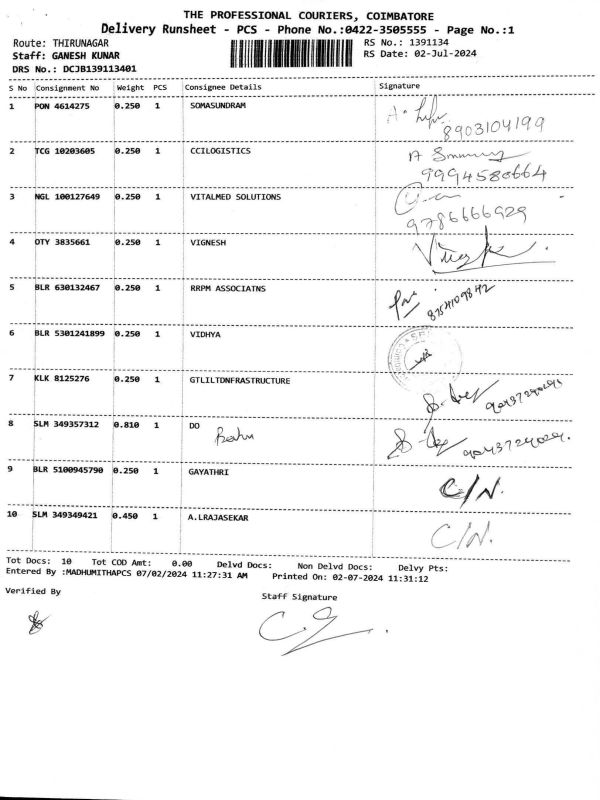 THE PROFESSIONAL COURIERS, COIMBATORE
Delivery Runsheet - PCS - Phone No.:0422-3505555 - Page No.:1
Route: THIRUNAGAR RS No.: 1391134
Staff: GANESH KUNAR RS Date: 02-Jul-2024
DRS No.: DCJB139113401
S No Consignment No Weight PCS Consignee Details Signature
1 PON 4614275 0.250 1 SOMASUNDRAM
8903104199
2 TCG 10203605 0.250 1 CCILOGISTICS
9994580664
3 NGL 100127649 0.250 1 VITALMED SOLUTIONS
9786666929
4 OTY 3835661 0.250 1 VIGNESH
5 BLR 630132467 0.250 1 RRPM ASSOCIATNS
8754109842
6 BLR 5301241899 0.250 1 VIDHYA
7 KLK 8125276 0.250 1 GTLILTDNFRASTRUCTURE
8 SLM 349357312 0.810 1 DO
9043724029.
9 BLR 5100945790 0.250 1 GAYATHRI C/N.
10 SLM 349349421 0.450 1 A.LRAJASEKAR C/N.
Tot Docs: 10 Tot COD Amt: 0.00 Delvd Docs: Non Delvd Docs: Delvy Pts:
Entered By :MADHUMITHAPCS 07/02/2024 11:27:31 AM Printed On: 02-07-2024 11:31:12
Verified By Staff Signature